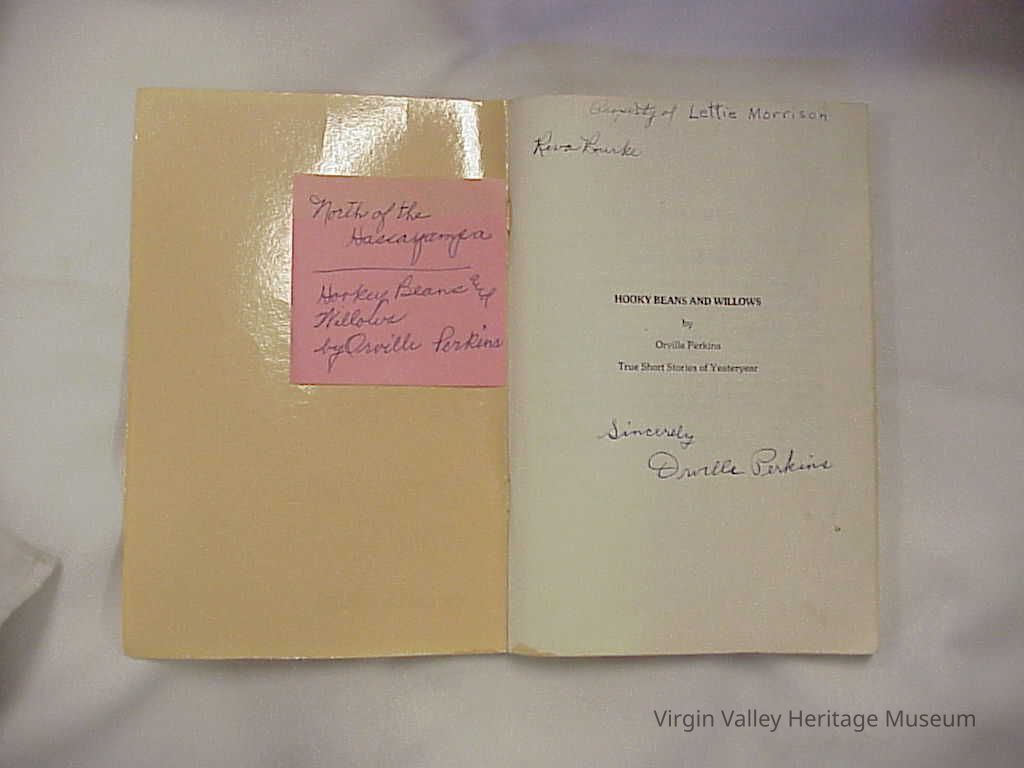 North of the
Hassayampa
Hookey Beans &
Willows
by Orville Perkins
Property of Lettie Morrison
Reva Bourke
HOOKY BEANS AND WILLOWS
by
Orville Perkins
True Short Stories of Yesteryear
Sincerely
Orville Perkins
Virgin Valley Heritage Museum